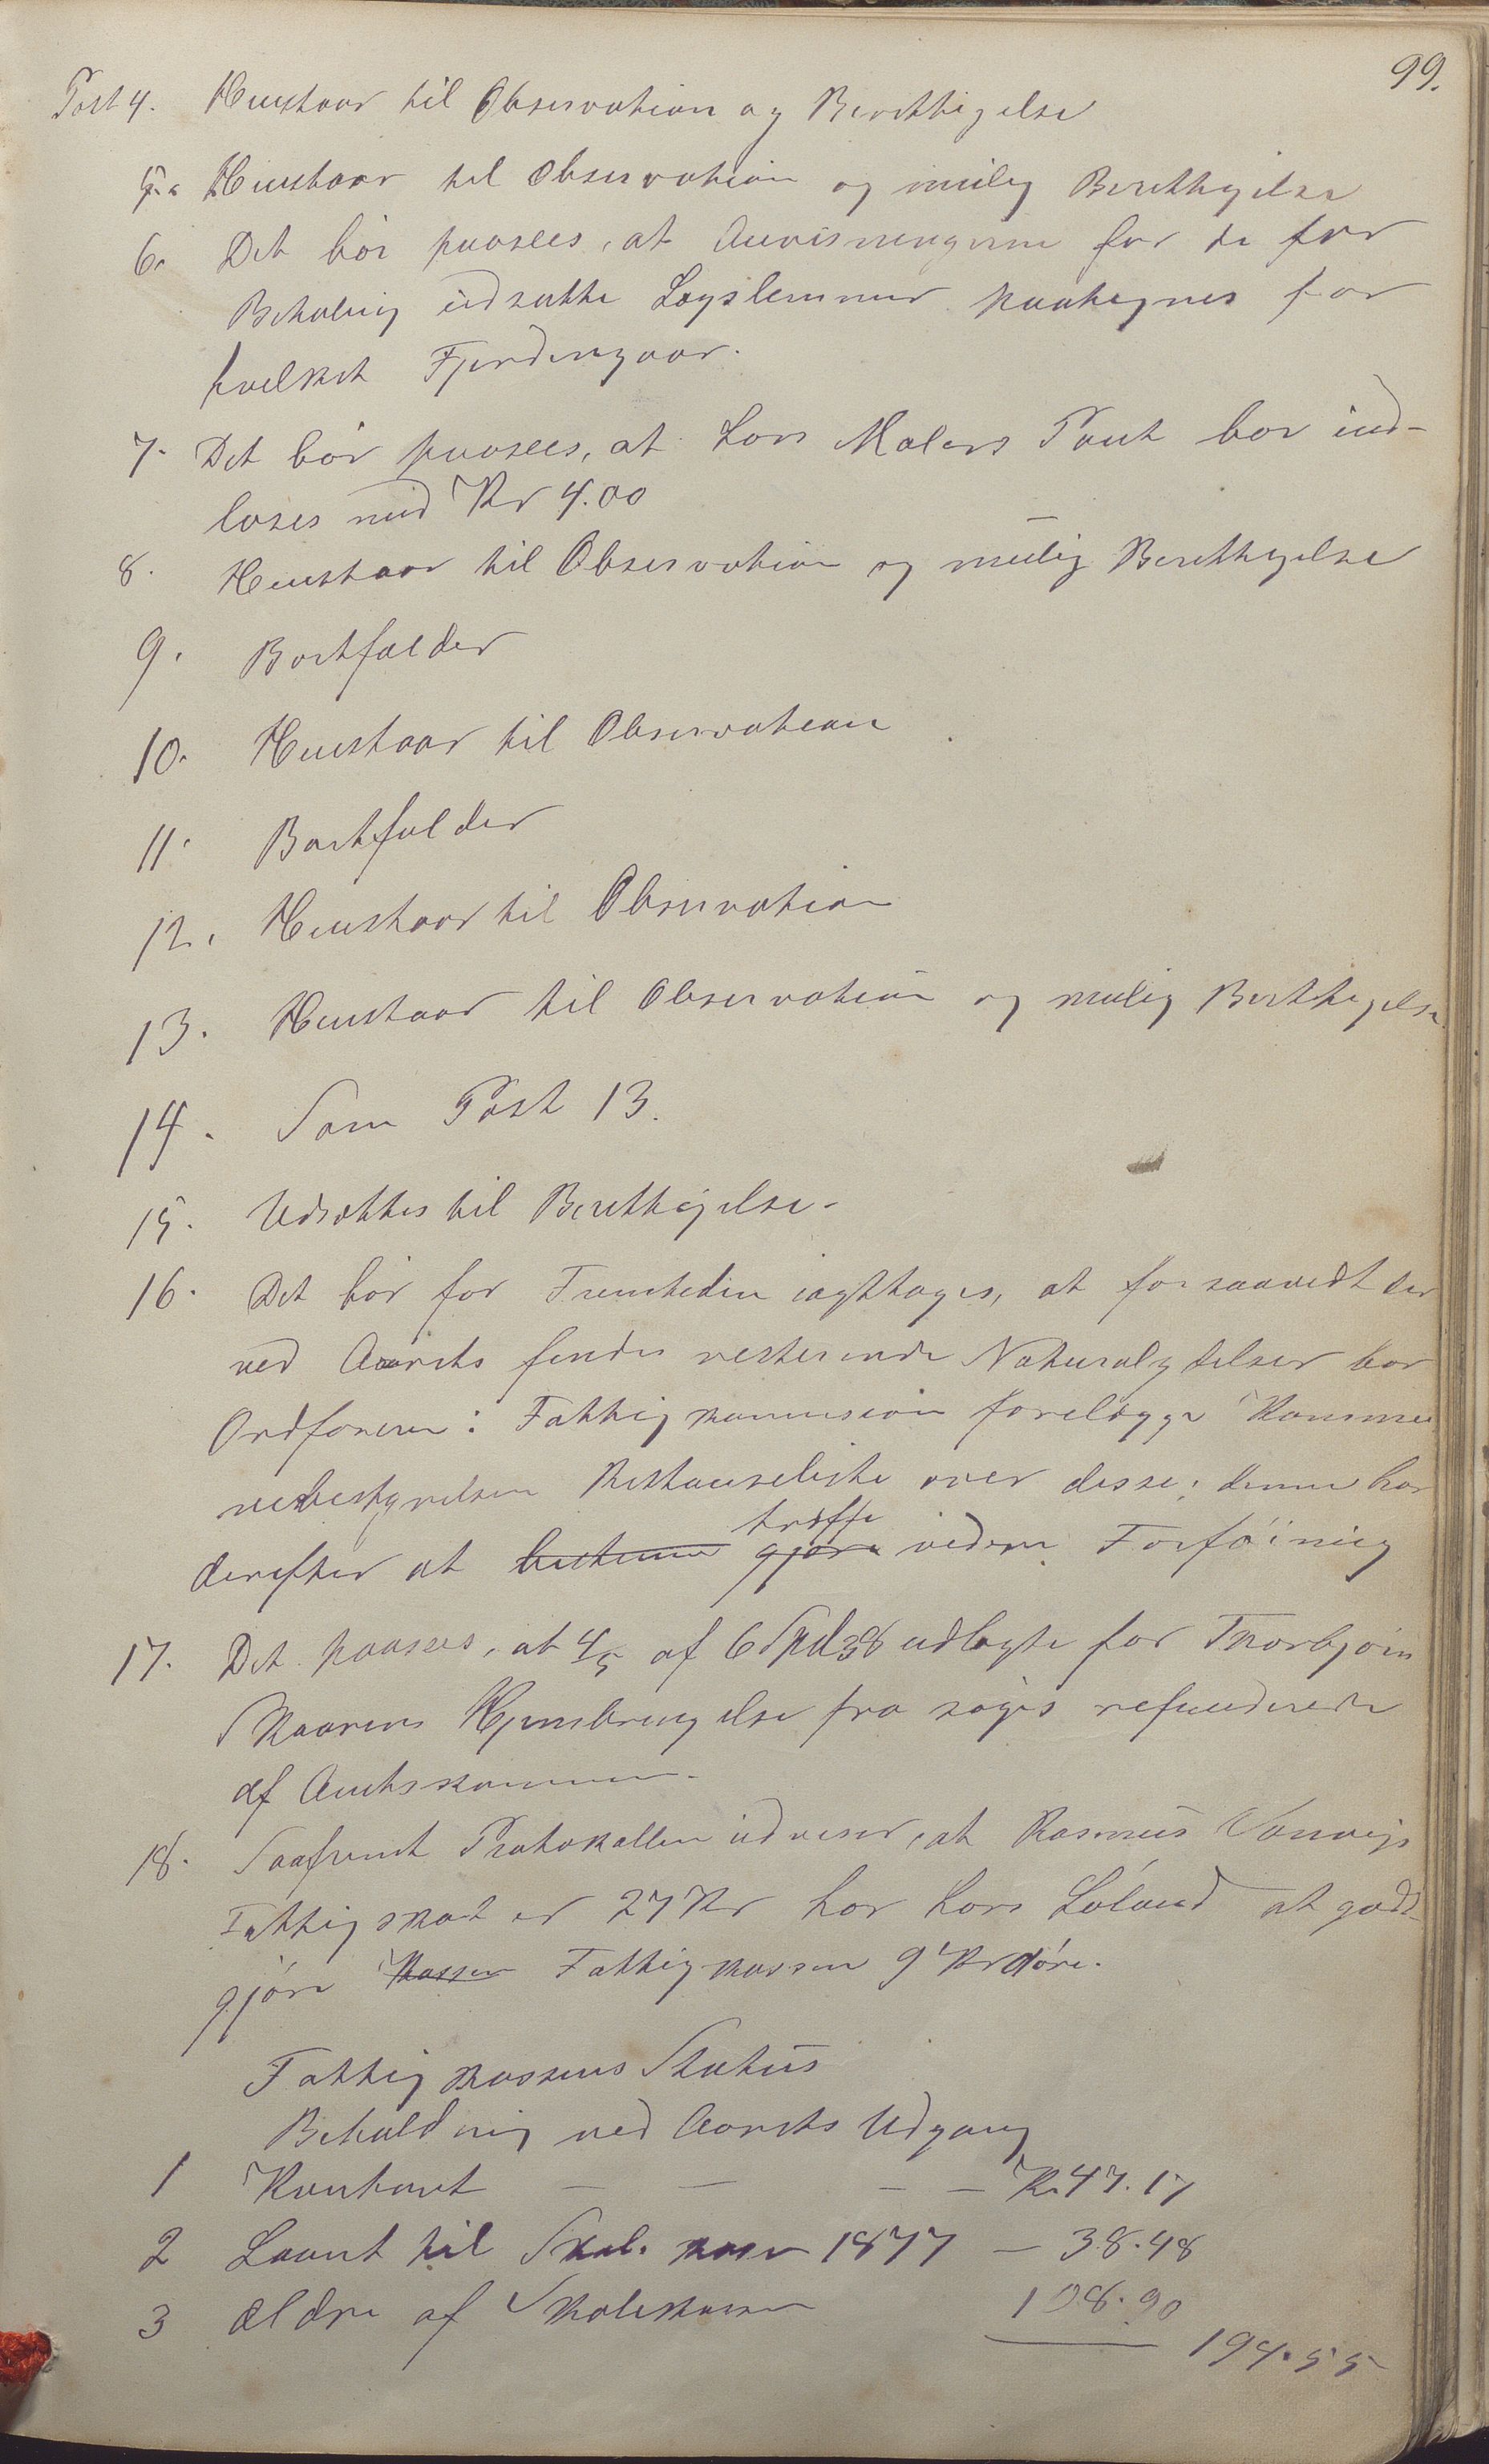 99.
Post 4. Henstaar til Observation og Berettigelse
5. Henstaar til Observation og mulig Berettigelse
6. Det bör paasees, at Anvisningerne for de for
Betaling udsatte Lægslemmer paategnes for
hvilket Fjerdingaar.
7. Det bör paasees, at Lars Malers Pant bør ind-
løses med Kr 4.00
8. Henstaar til Observation og mulig Berettigelse
9. Bortfalder
10. Henstaar til Observation
11. Bortfalder
12. Henstaar til Observation
13. Henstaar til Observation og mulig Berettigelse
14. Som Post 13.
15. Udsættes til Berettigelse.
16. Det bör for Fremtiden iagttages, at forsaavidt der
ved Aarets findes resterende Naturalytelser bør
Ordføreren i Fattigkommision forelægge Kommu
nebestyrelsen Restanseliste over disse; denne har
derefter at bestemme gjøre træffe videre Forföining
17. Det paasees, at 4/5 af 6 Spd 38 udlagte for Thorbjörn
Skaarens Hjembringelse fra söges refunderede
af Amtskommunen.
18. Saafremt Protokollen udviser, at Rasmus
Fattigskat er 27 Kr har Lars Löland at godt-
gjöre Kassen Fattigkassen 9 Kr
Fattigkassens Status
Beholdning ved Aarets Udgang
1 Kontant — — — — Kr 47.17
2 Laant til Skol. kasse 1877 — 38.48
3 Ældre af Skolekassen 108.90
194.55